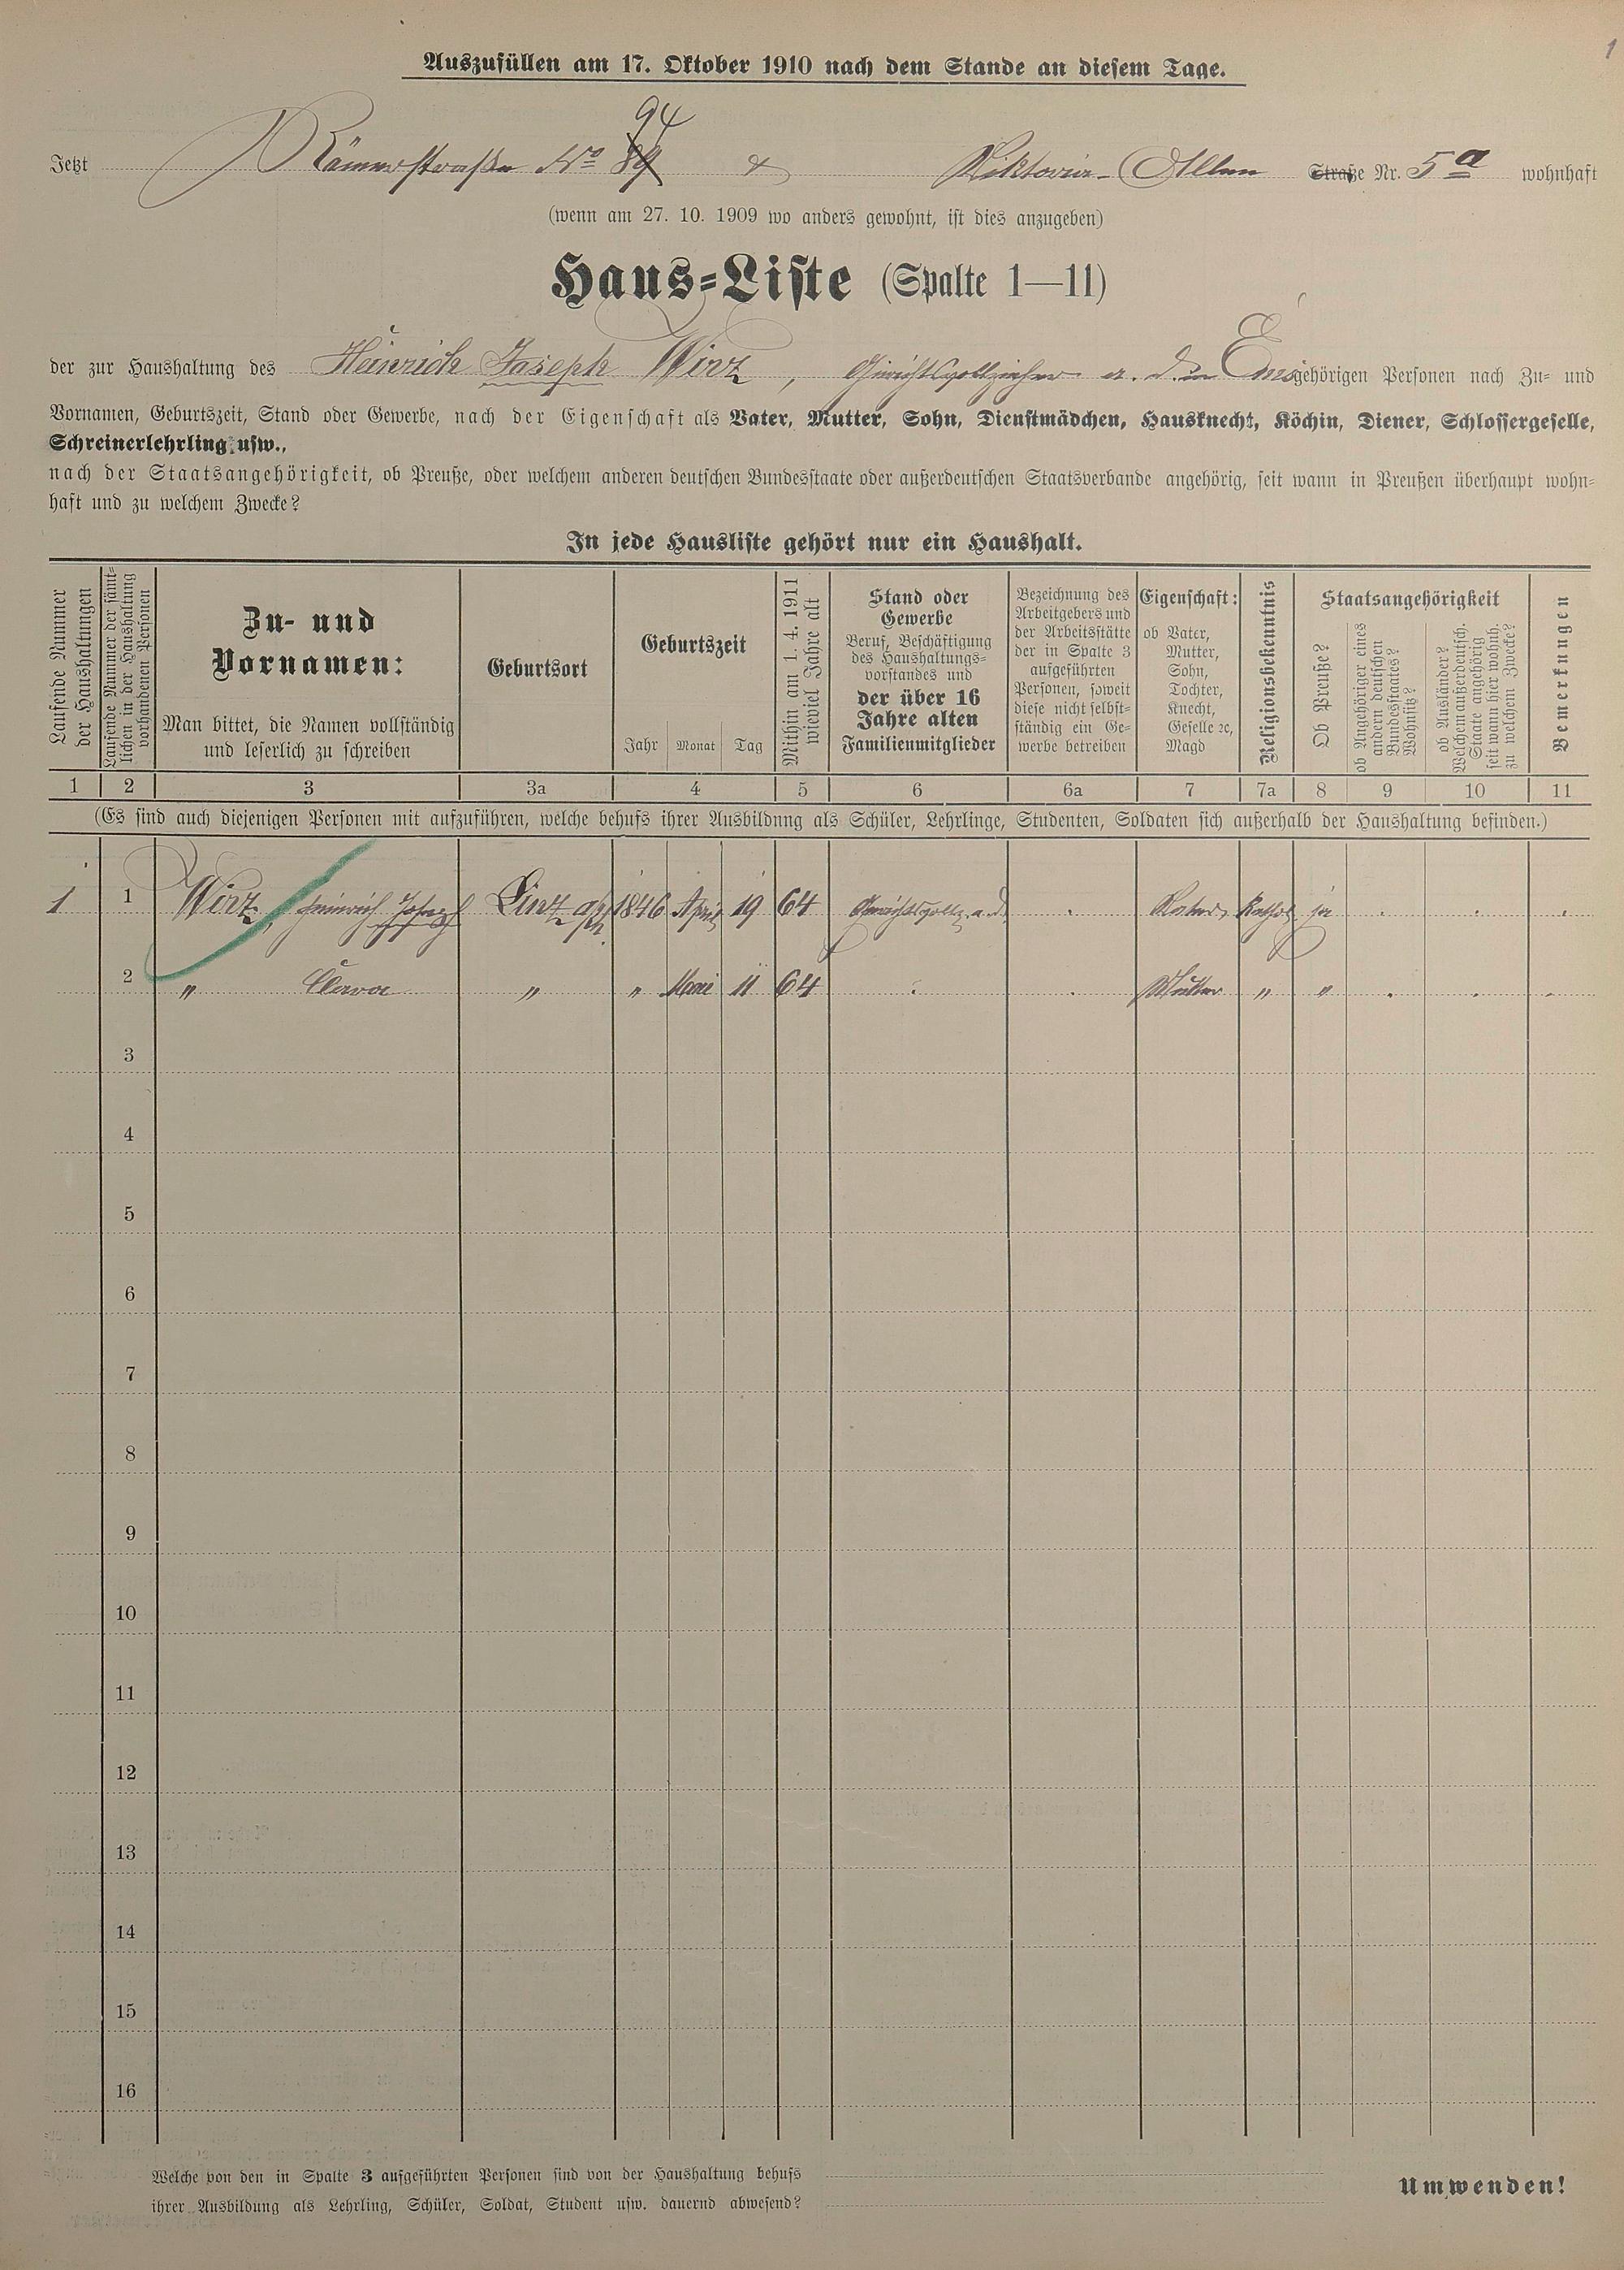 1
Auszufüllen am 17. Oktober 1910 nach dem Stande an diesem Tage.
94
Jetzt Römerstraße No 89 & Viktoria-Allee Straße Nr. 5a wohnhaft
(wenn am 27. 10. 1909 wo anders gewohnt, ist dies anzugeben)
Haus=Liste (Spalte 1—11)
der zur Haushaltung des Heinrich Joseph Wirz, Gerichtsvollzieher a. D. in Ems gehörigen Personen nach Zu- und
Vornamen, Geburtszeit, Stand oder Gewerbe, nach der Eigenschaft als Vater, Mutter, Sohn, Dienstmädchen, Hausknecht, Köchin, Diener, Schlossergeselle,
Schreinerlehrling usw.,
nach der Staatsangehörigkeit, ob Preuße, oder welchem anderen deutschen Bundesstaate oder außerdeutschen Staatsverbande angehörig, seit wann in Preußen überhaupt wohn=
haft und zu welchem Zwecke?
In jede Hausliste gehört nur ein Haushalt.
Laufende Nummer
der Haushaltungen
Laufende Nummer der sämt=
lichen in der Haushaltung
vorhandenen Personen
Zu- und
Vornamen:
Man bittet, die Namen vollständig
und leserlich zu schreiben
Geburtsort
Geburtszeit
Jahr Monat Tag
Mithin am 1. 4. 1911
wieviel Jahre alt
Stand oder
Gewerbe
Beruf, Beschäftigung
des Haushaltungs=
vorstandes und
der über 16
Jahre alten
Familienmitglieder
Bezeichnung des
Arbeitgebers und
der Arbeitsstätte
der in Spalte 3
aufgeführten
Personen, soweit
diese nicht selbst=
ständig ein Ge=
werbe betreiben
Eigenschaft:
ob Vater,
Mutter,
Sohn,
Tochter,
Knecht,
Geselle ꝛc,
Magd
Religionsbekenntnis
Staatsangehörigkeit
Ob Preuße?
ob Angehöriger eines
andern deutschen
Bundesstaates?
Wohnsitz?
ob Ausländer?
Welchem außerdeutsch.
Staate angehörig
seit wann hier wohnh.
zu welchem Zwecke?
Bemerkungen
1 2 3 3a 4 5 6 6a 7 7a 8 9 10 11
(Es sind auch diejenigen Personen mit aufzuführen, welche behufs ihrer Ausbildung als Schüler, Lehrlinge, Studenten, Soldaten sich außerhalb der Haushaltung befinden.)
1 1 Wirz, Heinrich Joseph Linz a/Rh. 1846 April 19 64 Gerichtsvollz. a. D. Vater Kathol ja
2 " Clara " " März 11 64 Mutter " "
3
4
5
6
7
8
9
10
11
12
13
14
15
16
Welche von den in Spalte 3 aufgeführten Personen sind von der Haushaltung behufs
ihrer Ausbildung als Lehrling, Schüler, Soldat, Student usw. dauernd abwesend?
Umwenden!